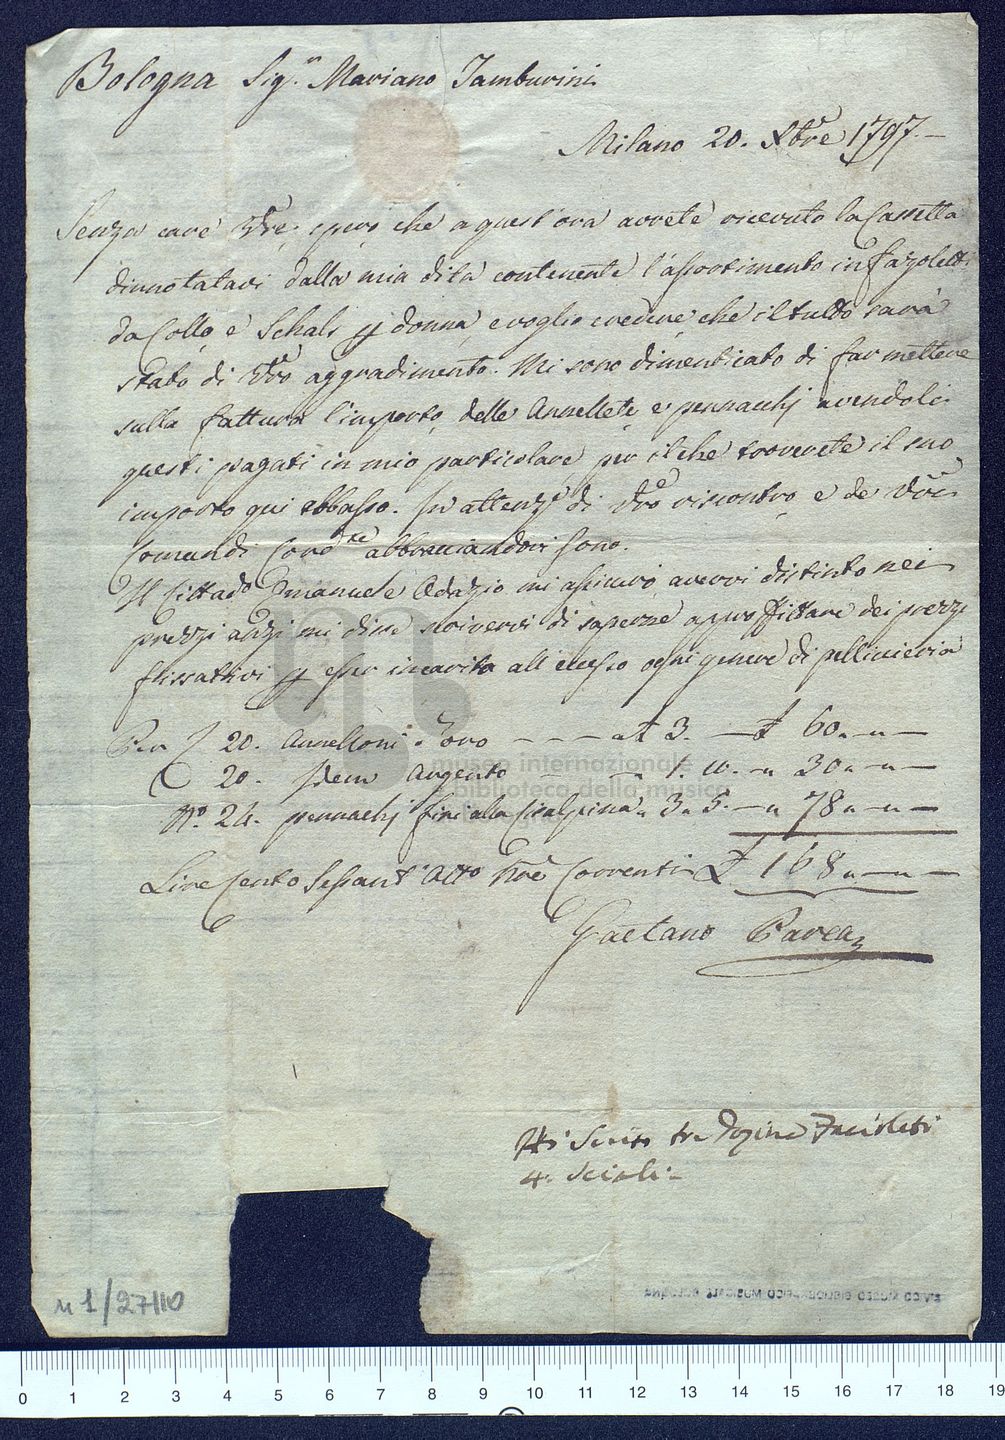 Bologna Sig.r Mariano Tamburini
Milano 20. Xbre 1797.
Senza care Vre; spero che a quest'ora avrete ricevuto la Cassetta
dinnotatavi dalla mia dita contenente l'assortimento in fazoletti
da Collo e Schals p donna, e voglio credere che il tutto sarà
stato di Vro aggradimento. Mi sono dimenticato di far mettere
sulla fattura l'importo delle Annellete e pennachj avendoli
questi pagati in mio particolare per il che troverete il suo
importo qui abbasso. In attenz.e di Vro riscontro e de Vri
Comandi Cord.te abbracciandovi sono.
Il Cittad.o Emanuele Adazio mi assicurò avervi distinto nei
prezzi anzi mi disse scrivervi di saperne approffittare dei prezzi
fissativi p esser incarita all'ecesso ogni genere di pelliceria
Per 20. Annelloni d'oro - - - a £ 3. - £ 60.-"-
20. Idem Argento - - " 1. 10. -" 30"-"-
N.o 24. pennachj fini alla Cisalpina " 3" 5. -" 78"-"-
Lire Cento Sessant'Otto Correnti £ 168"-"-
Gaetano Pavea
tre Dozine Facioleti
4. Sciali -
museo internazionale
e biblioteca della musica
CIVICO MUSEO BIBLIOGRAFICO MUSICALE BOLOGNA
u 1/27110
0 1 2 3 4 5 6 7 8 9 10 11 12 13 14 15 16 17 18 19